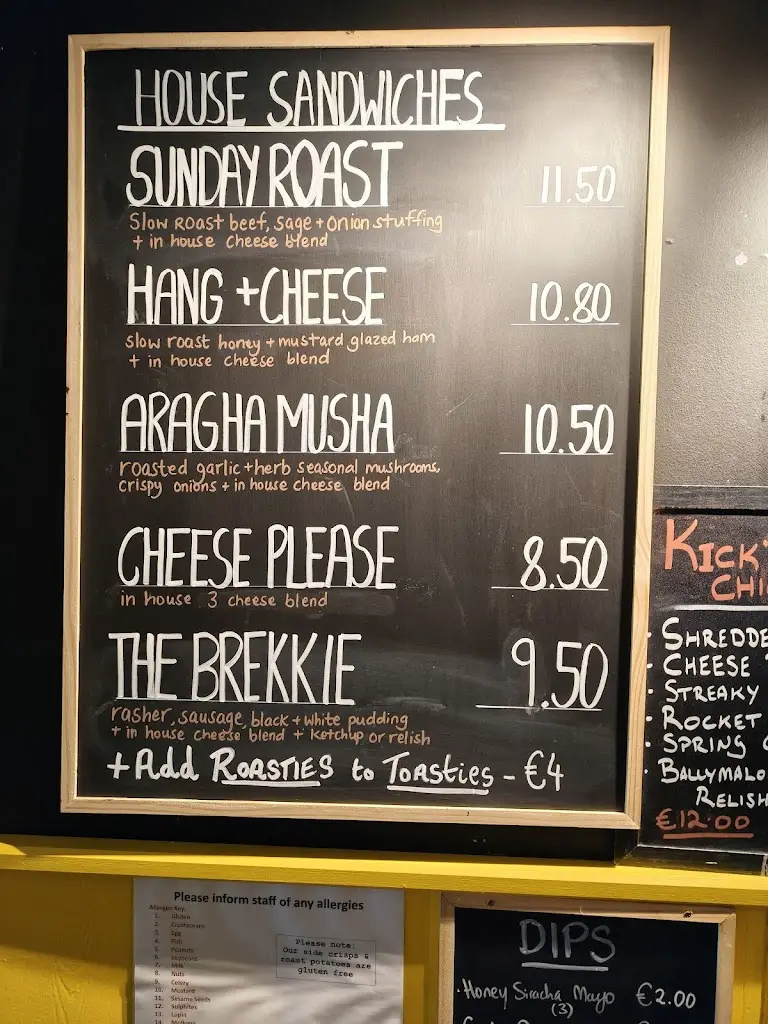 HOUSE SANDWICHES
SUNDAY ROAST 11.50
Slow Roast beef, sage + onion stuffing
+ in house cheese blend
HANG + CHEESE 10.80
slow roast honey + mustard glazed ham
+ in house cheese blend
ARAGHA MUSHA 10.50
roasted garlic + herb seasonal mushrooms,
crispy onions + in house cheese blend
CHEESE PLEASE 8.50
in house 3 cheese blend
THE BREKKIE 9.50
rasher, sausage, black + white pudding
+ in house cheese blend + ketchup or relish
+ Add ROASTIES to TOASTIES - €4
KICK
CHI
· SHREDDE
· CHEESE
· STREAKY
· ROCKET
· SPRING
· BALLYMALO
RELISH
€12.00
Please inform staff of any allergies
Allergen Key:
1. Gluten
2. Crustaceans
3. Egg
4. Fish
5. Peanuts
6. Soybeans
7. Milk
8. Nuts
9. Celery
10. Mustard
11. Sesame Seeds
12. Sulphites
13. Lupin
14. Molluscs
Please note:
Our side crisps &
roast potatoes are
gluten free
DIPS
· Honey Siracha Mayo €2.00
(3)